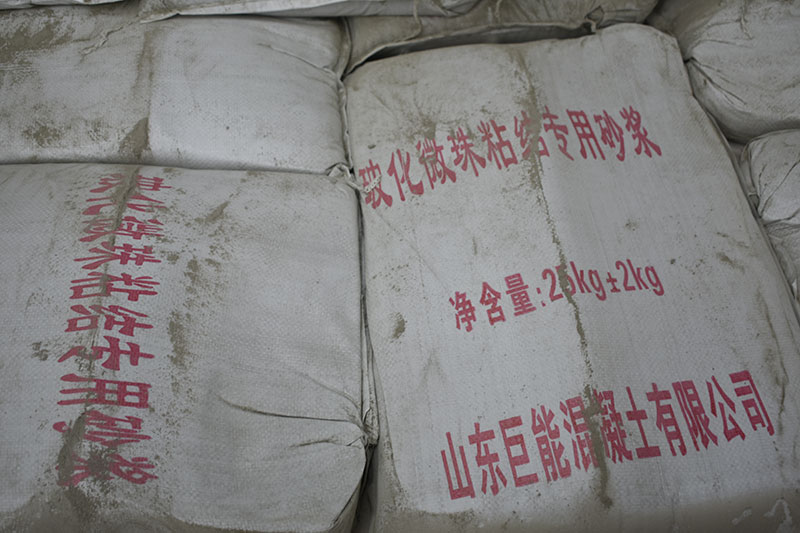 玻化微珠粘结专用砂浆
玻化微珠粘结专用砂浆
净含量:25kg±2kg
山东巨能混凝土有限公司